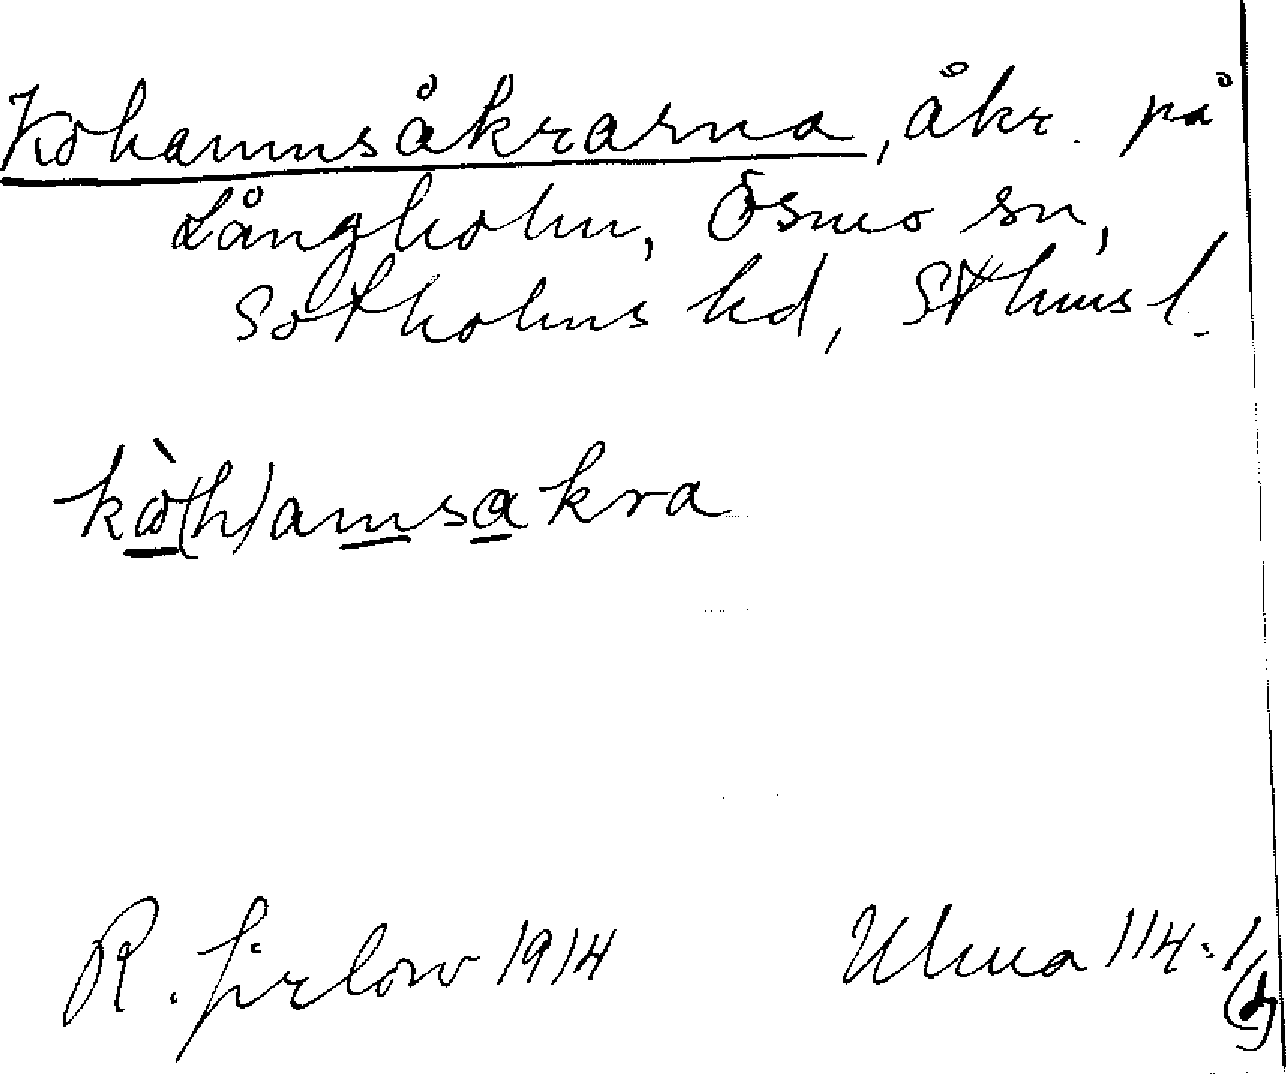 Kohamnsåkrarna, åkr. på
Långholm, Ösmo sn,
Sotholms hd, Sthms l.
kò(h)amsakra
R. Jirlow 1914
Ulma 114:1